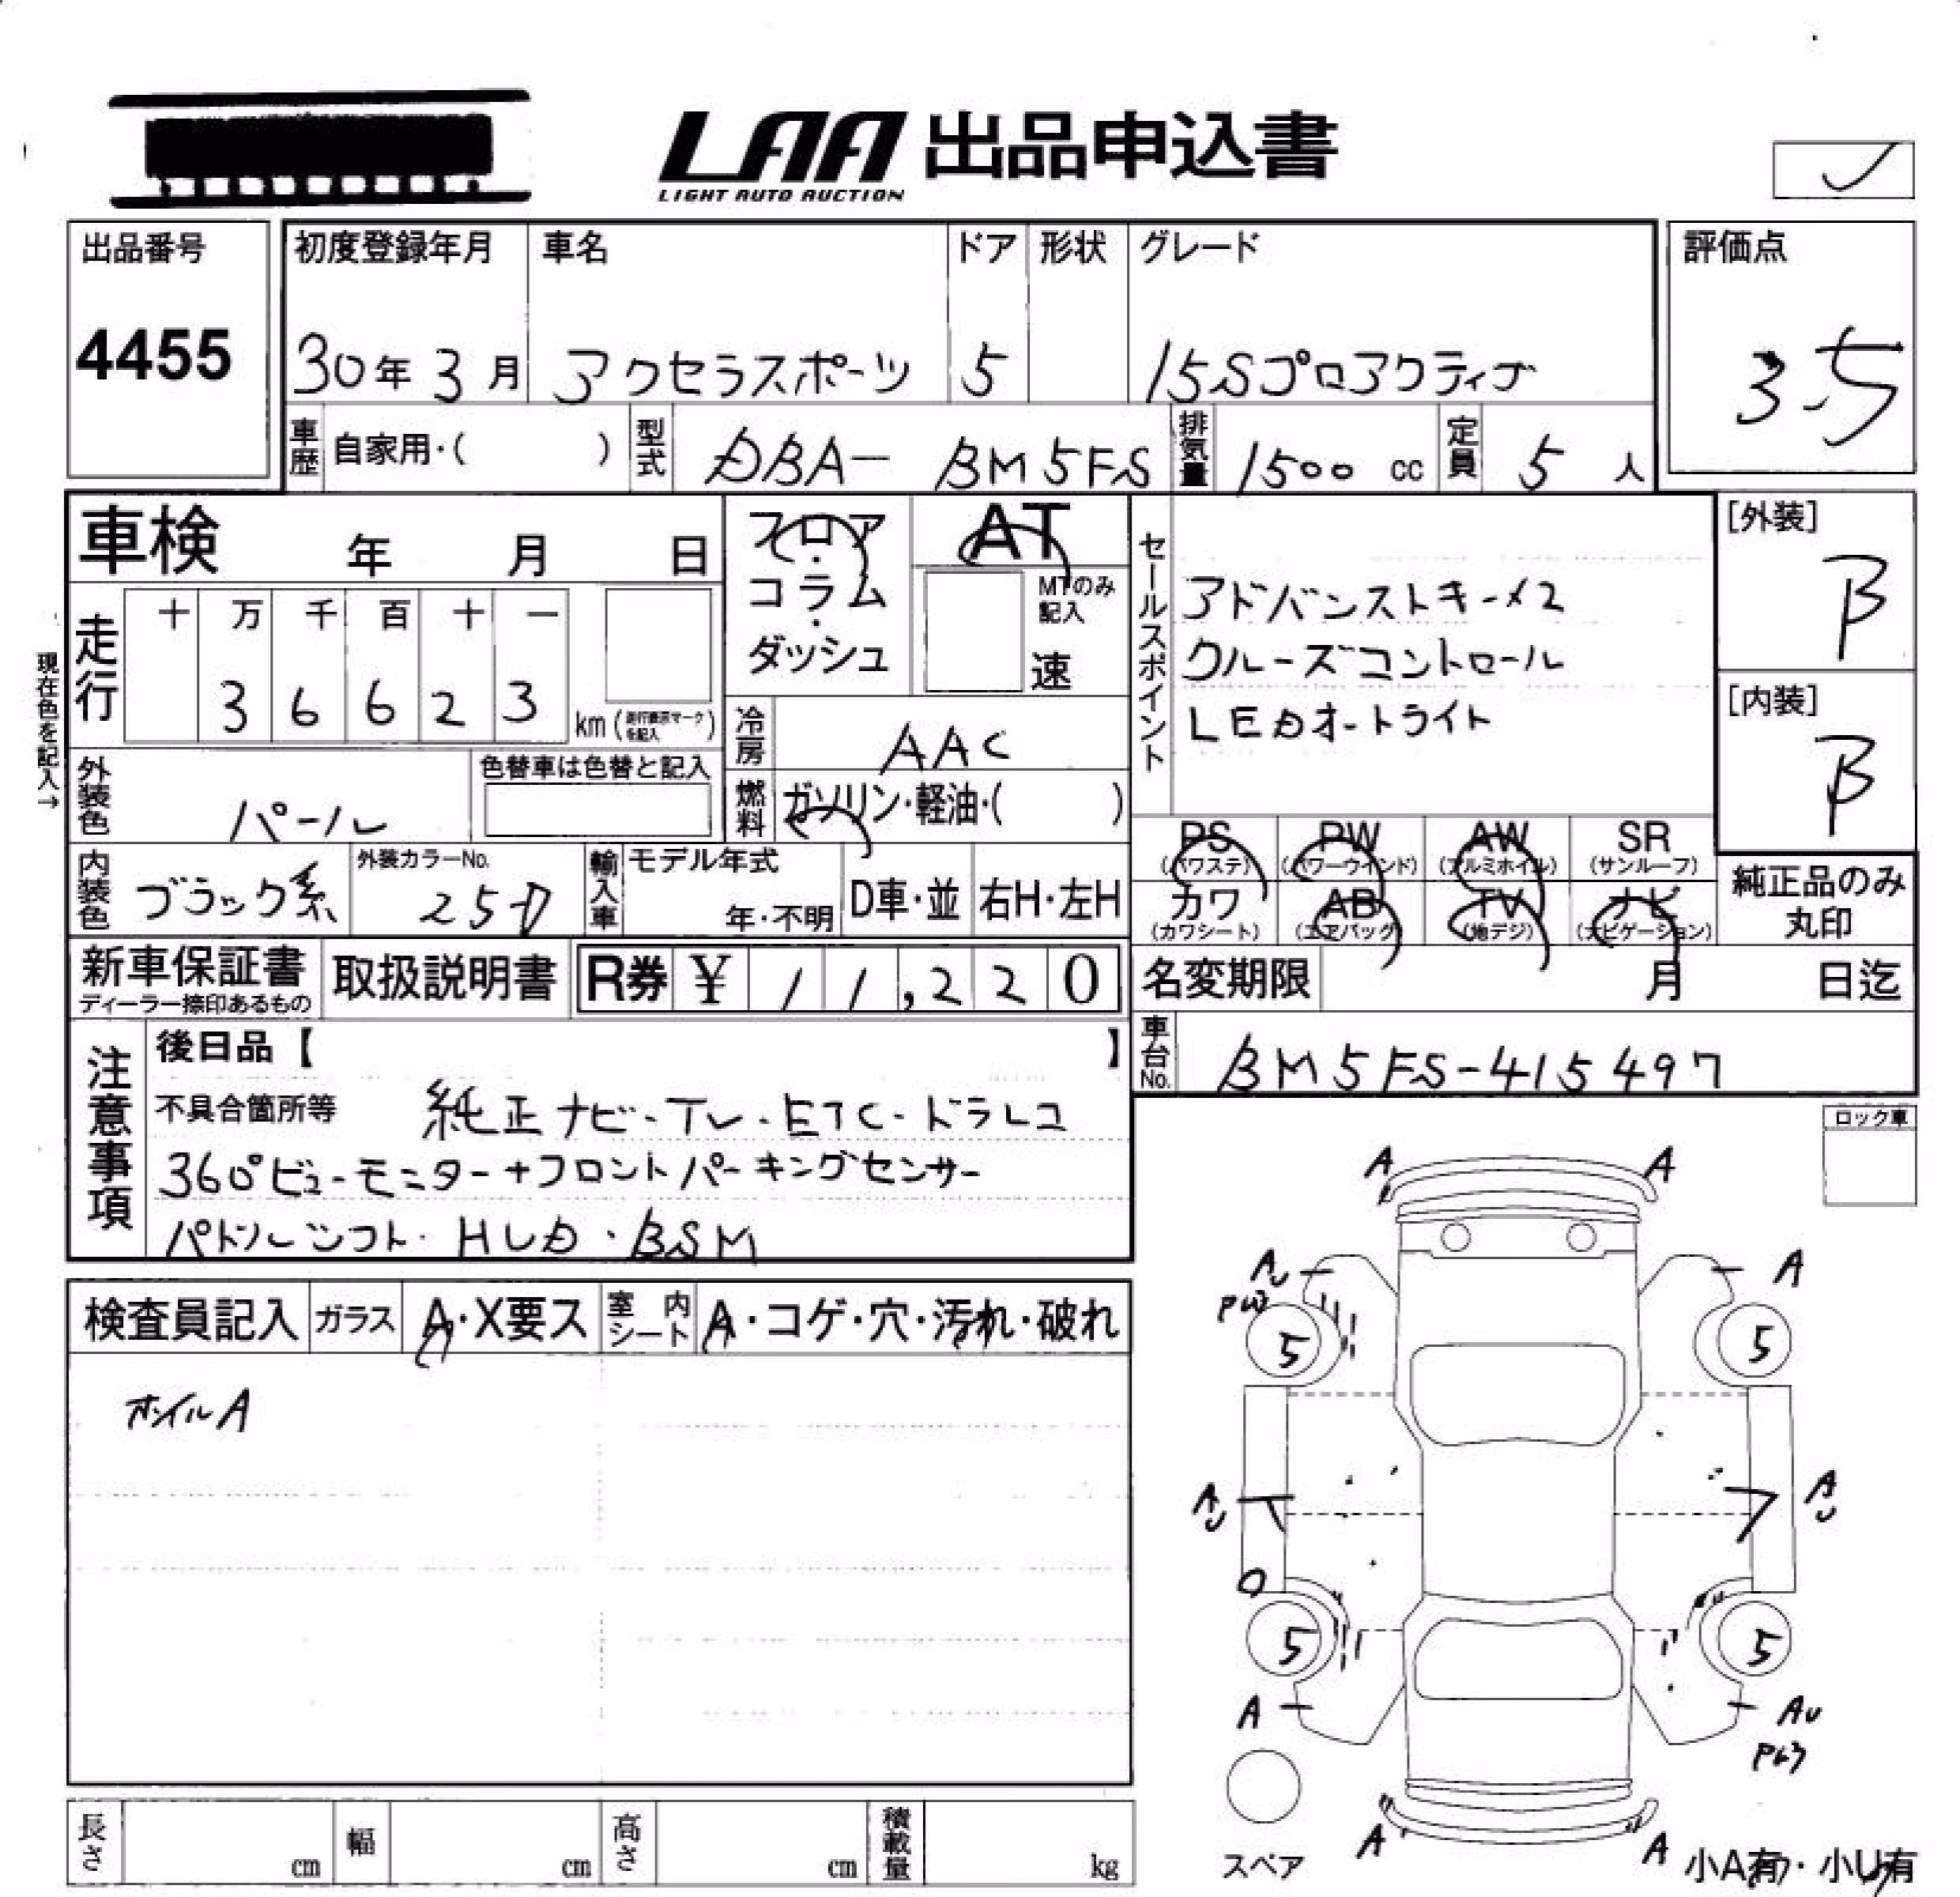 LAA 出品申込書
LIGHT AUTO AUCTION
出品番号
4455
初度登録年月 車名 ドア 形状 グレード
30年 3月 アクセラスポーツ 5 15Sプロアクティブ
評価点
3.5
車歴 自家用・( ) 型式 DBA- BM5FS 排気量 1500 cc 定員 5 人
車検 年 月 日
フロア・コラム・ダッシュ
AT
MTのみ記入
速
走行
十 万 千 百 十 一
3 6 6 2 3
km (走行表示マークを記入)
現在色を記入→
外装色 パール
色替車は色替と記入
冷房 AAC
燃料 ガソリン・軽油・( )
セールスポイント
アドバンストキー×2
クルーズコントロール
LEDオートライト
[外装]
B
[内装]
B
PS (パワステ) PW (パワーウインド) AW (アルミホイル) SR (サンルーフ)
カワ (カワシート) AB (エアバッグ) TV (地デジ) ナビ (ナビゲーション)
純正品のみ丸印
内装色 ブラック系
外装カラーNo.
25D
輸入車 モデル年式
年・不明
D車・並 右H・左H
新車保証書
ディーラー捺印あるもの
取扱説明書
R券 ¥ 11,220
名変期限 月 日迄
車台No. BM5FS-415497
注意事項
後日品【 】
不具合箇所等 純正ナビ・TV・ETC・ドラレコ
360°ビューモニター+フロントパーキングセンサー
パドルシフト・HUD・BSM
ロック車
検査員記入 ガラス A・X要ス 室内シート A・コゲ・穴・汚れ・破れ
ホイルA
A A
AU A
5 5
AU AU
5 5
A AU
A A
スペア
小A有・小U有
長さ cm 幅 cm 高さ cm 積載量 kg